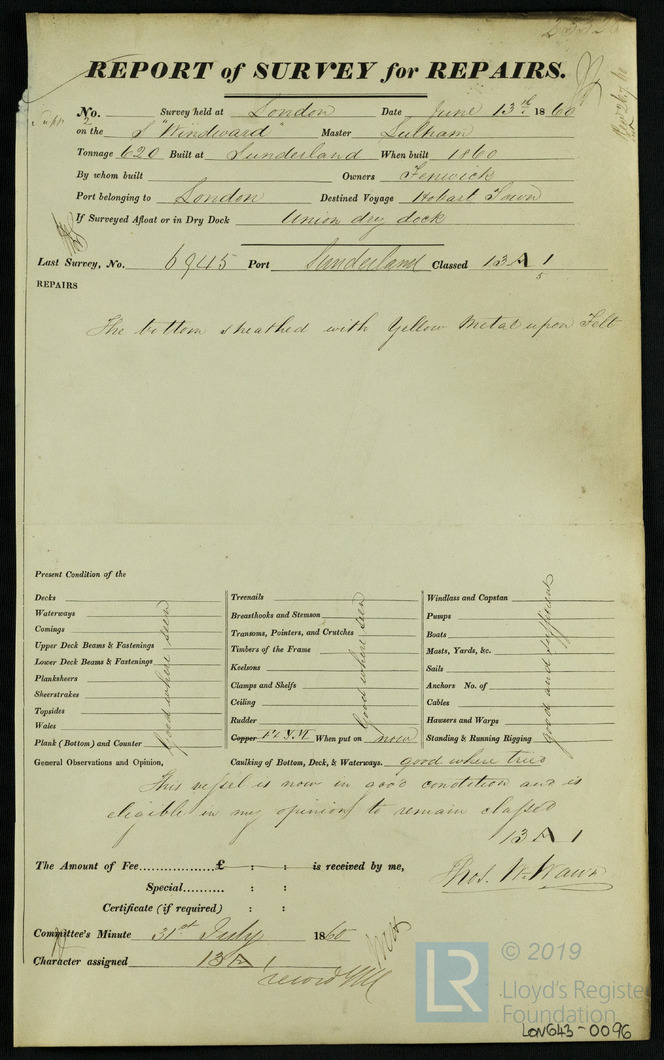 REPORT of SURVEY for REPAIRS.
No. Survey held at London Date June 13th 1860
on the S "Windward" Master Sulham
Tonnage 620 Built at Sunderland When built 1860
By whom built Owners Fenwick
Port belonging to London Destined Voyage Hobart Town
If Surveyed Afloat or in Dry Dock Union dry dock
Last Survey, No. 6945 Port Sunderland Classed 13 A 1
5
REPAIRS
The bottom sheathed with Yellow Metal upon Felt
Present Condition of the
Decks
Waterways
Comings
Upper Deck Beams & Fastenings
Lower Deck Beams & Fastenings
Planksheers
Sheerstrakes
Topsides
Wales
Plank (Bottom) and Counter
Good where seen
Treenails
Breasthooks and Stemson
Transoms, Pointers, and Crutches
Timbers of the Frame
Keelsons
Clamps and Shelfs
Ceiling
Rudder
Copper Y.M When put on now
Good where seen
Windlass and Capstan
Pumps
Boats
Masts, Yards, &c.
Sails
Anchors No. of
Cables
Hawsers and Warps
Standing & Running Rigging
good and sufficient
General Observations and Opinion, Caulking of Bottom, Deck, & Waterways. good where tried
This vessel is now in good condition and is
eligible in my opinion to remain classed
13 A 1
The Amount of Fee................£ : : is received by me,
Special.......... : :
Certificate (if required) : :
Thos. W. Wawn
Committee's Minute 31st July 1860
Character assigned 13 A 1
© 2019
LR Lloyd's Registe
Foundation
LON643-0096